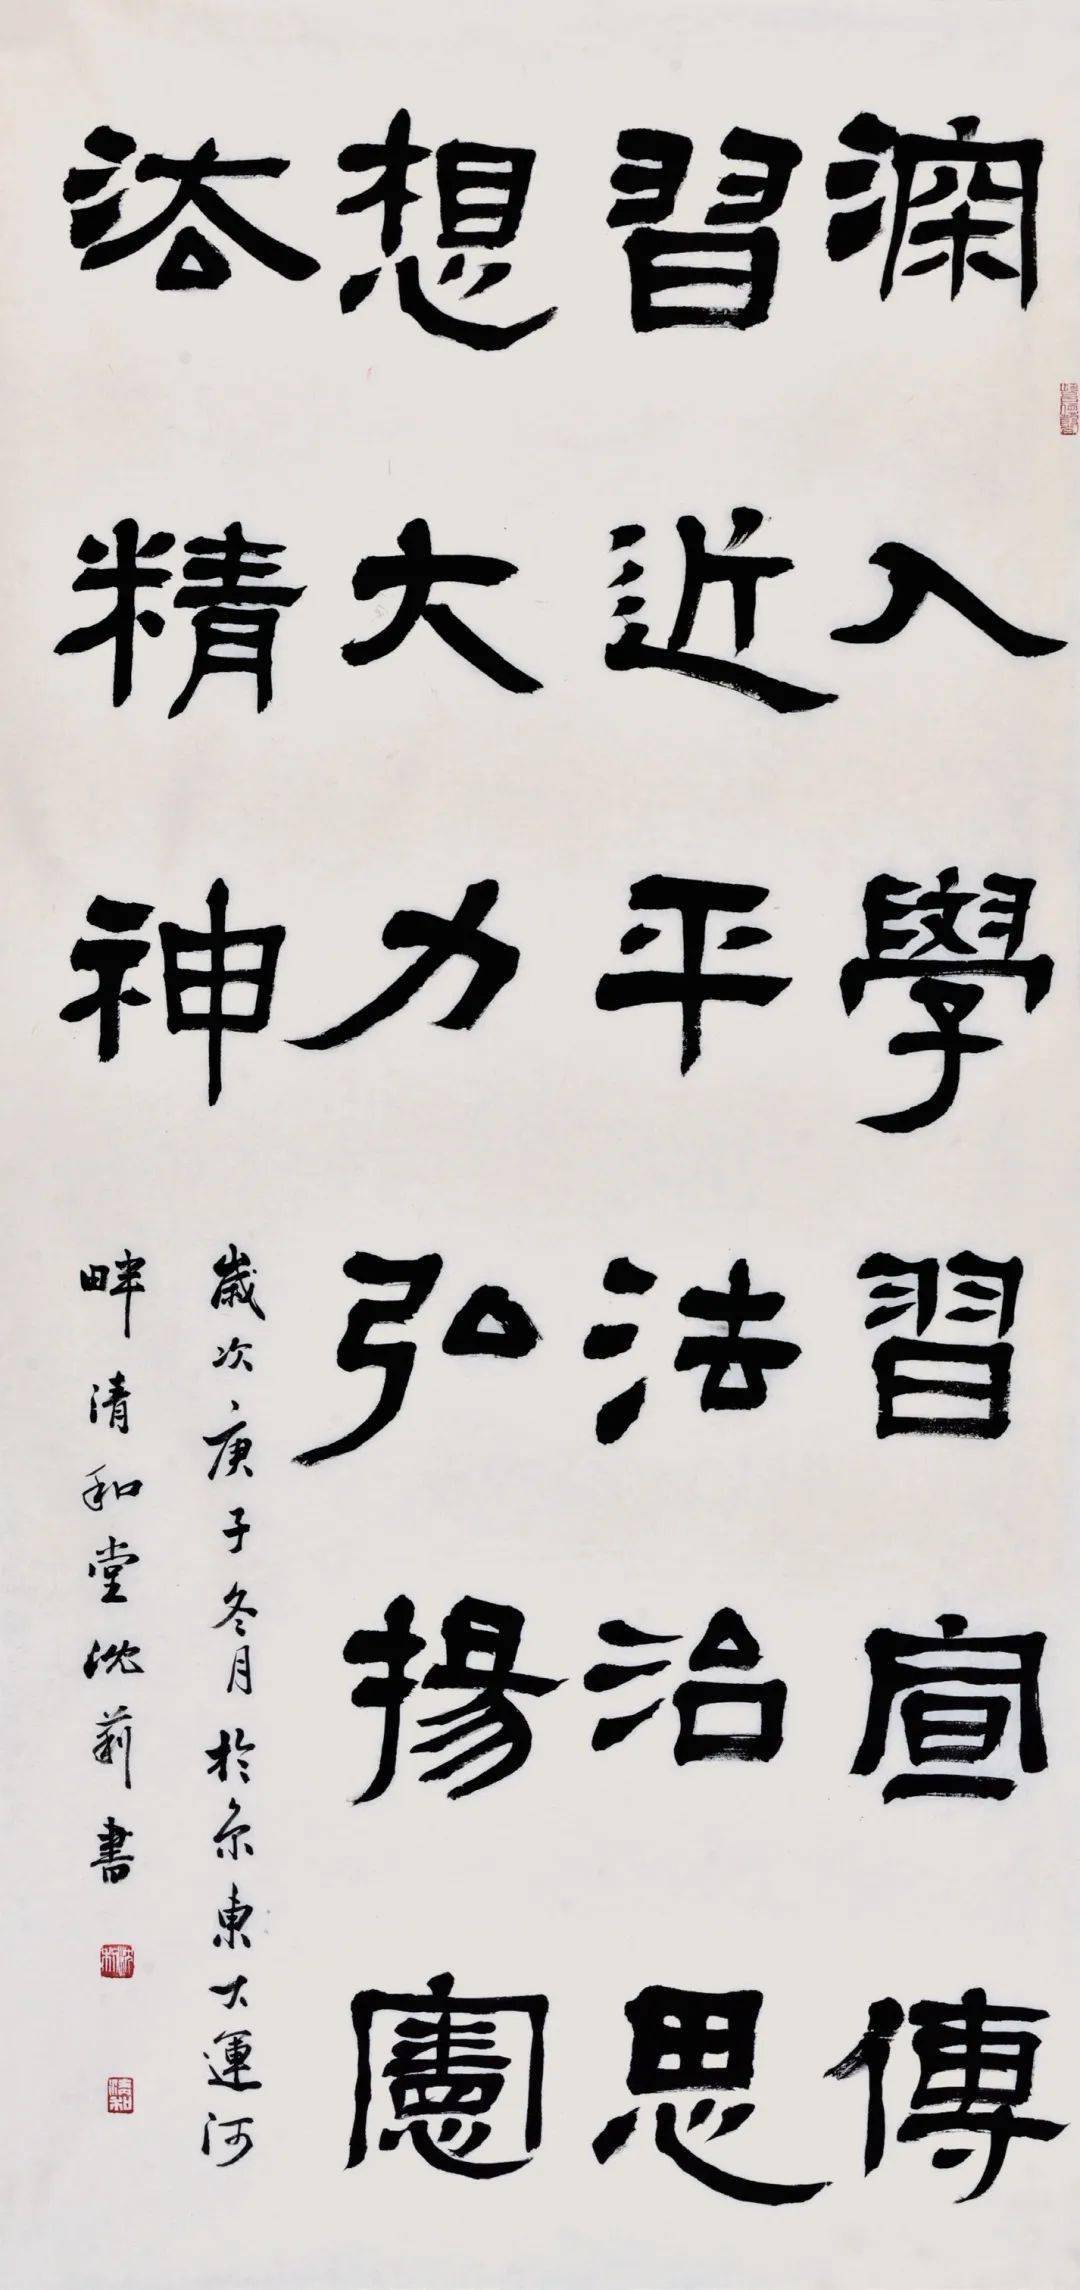 深入學習宣傳
習近平法治思
想大力弘揚憲
法精神
歲次庚子冬月於京東大運河
畔清和堂沈莉書